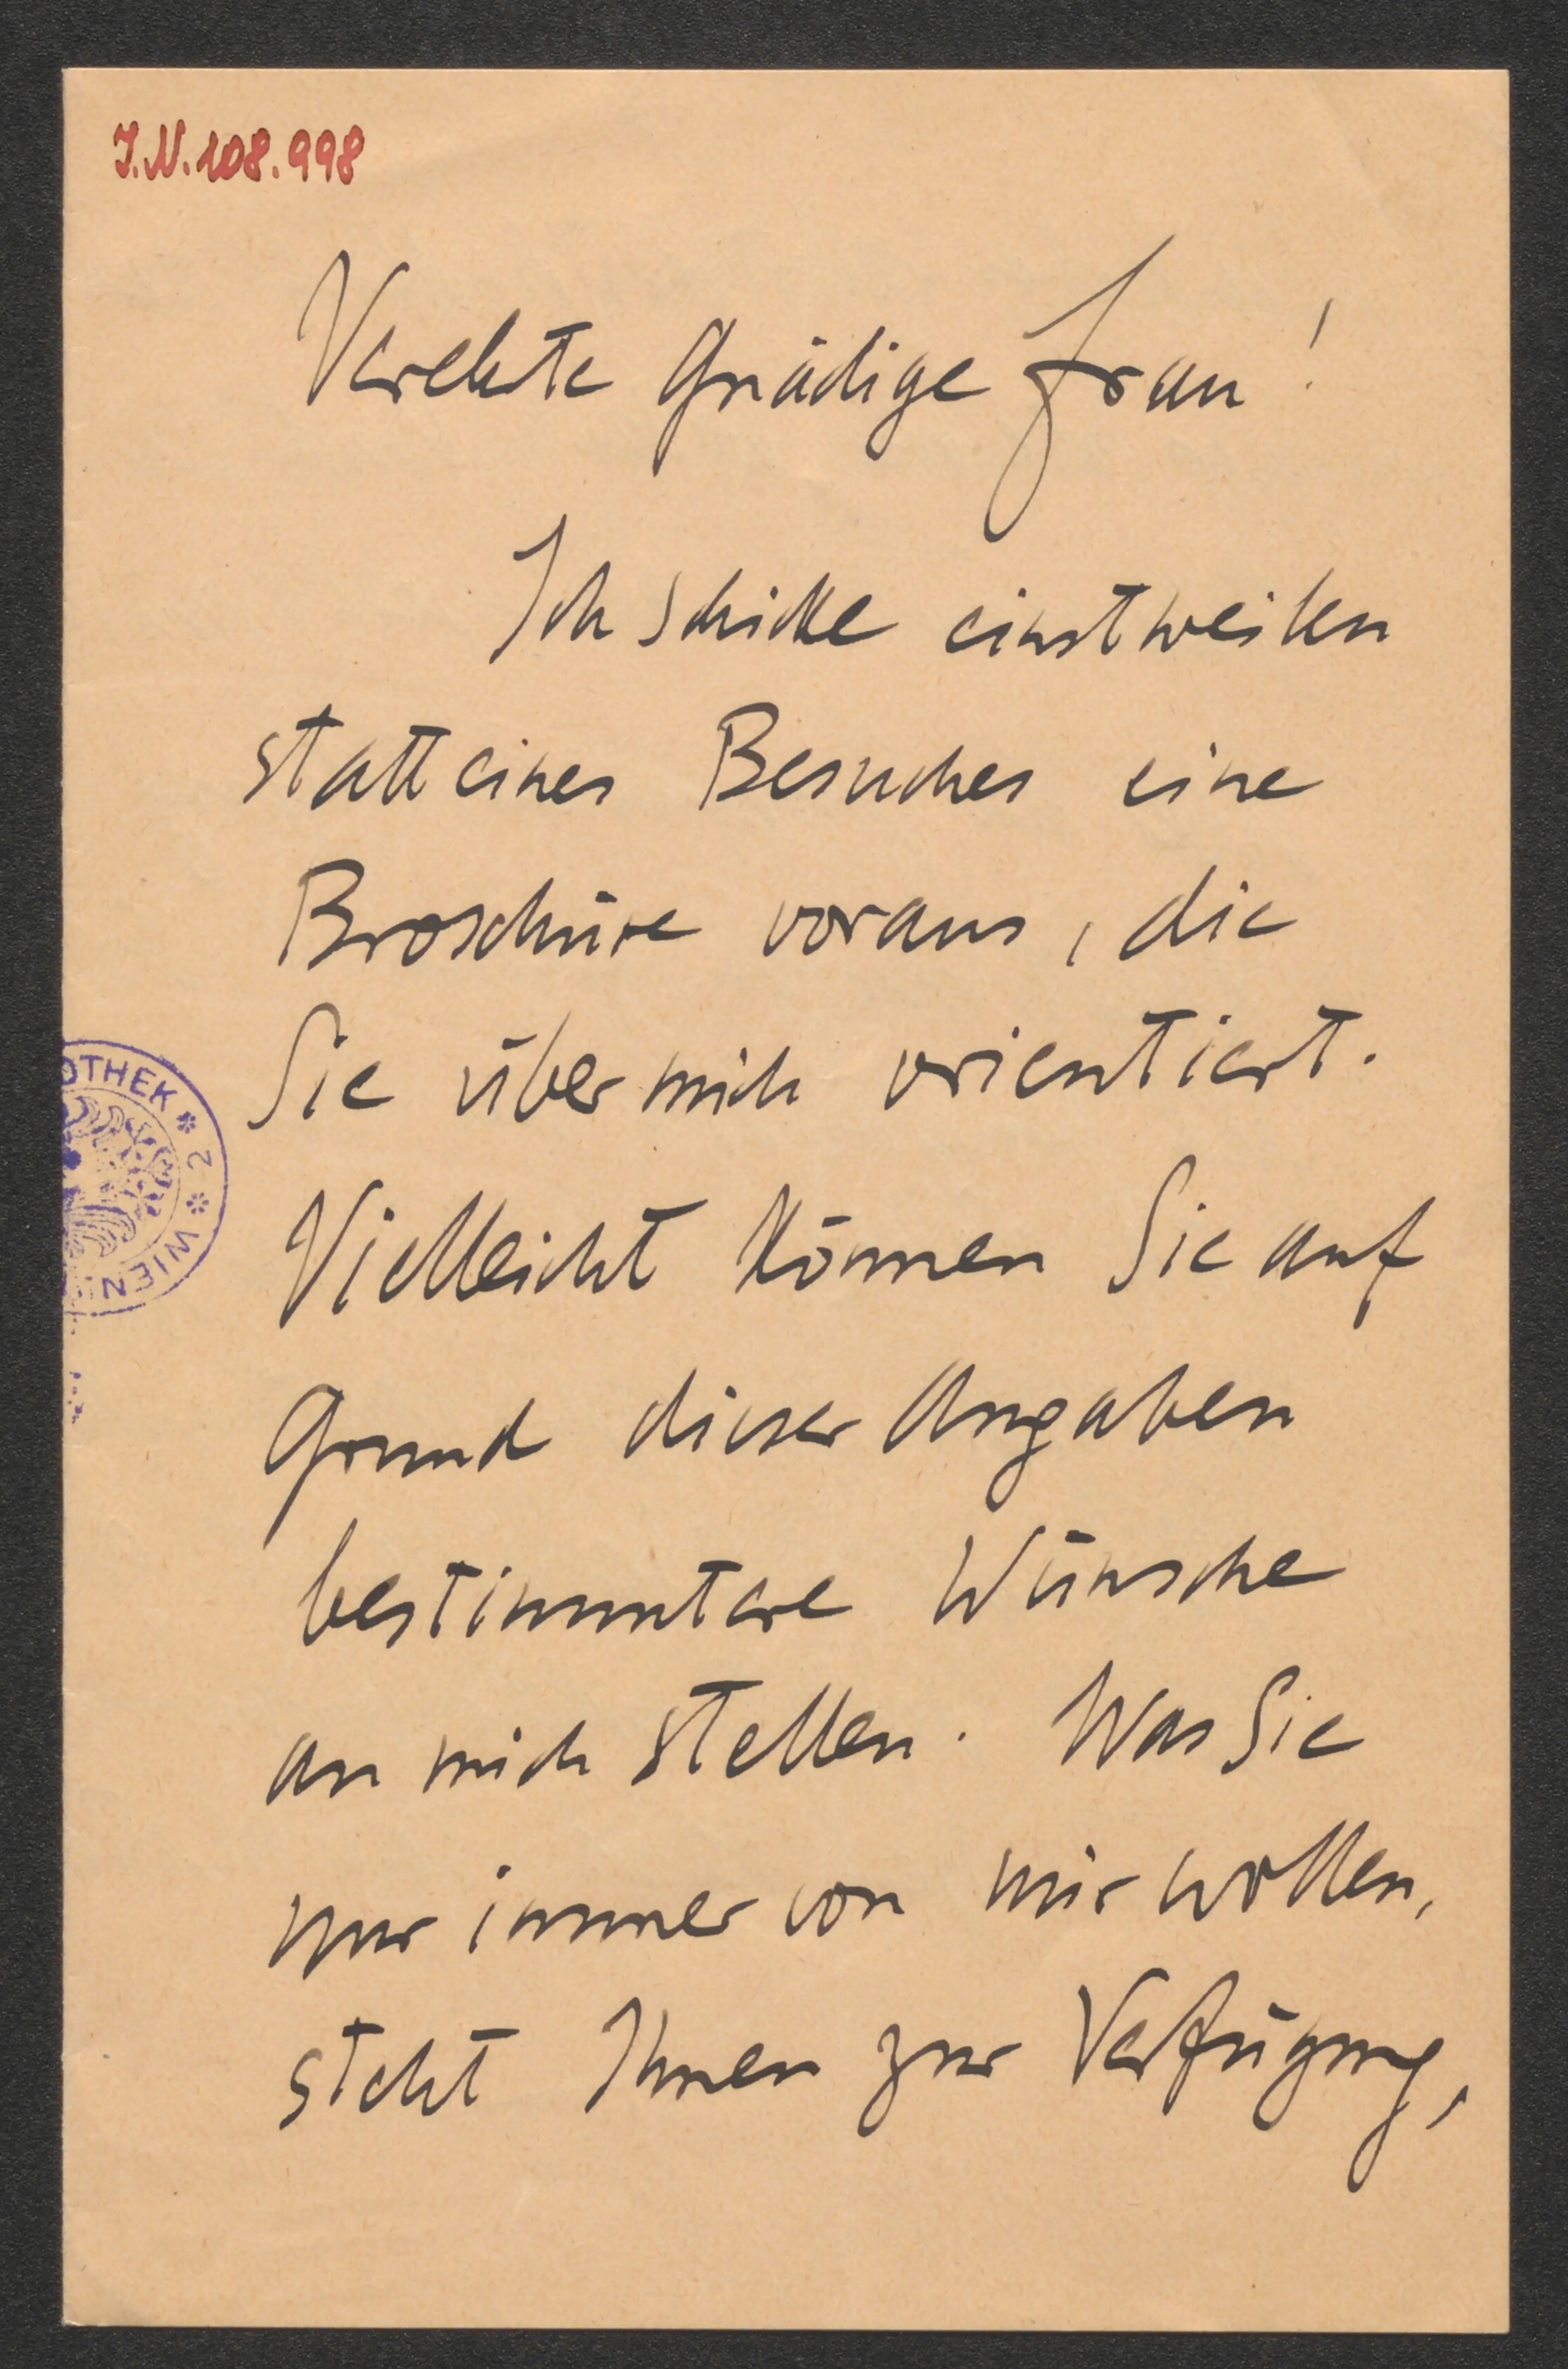 I.N.108.998
Verehrte Gnädige Frau!
Ich schicke einstweilen
statt eines Besuches eine
Broschüre voraus, die
Sie über mich orientiert.
Vielleicht können Sie auf
Grund dieser Angaben
bestimmtere Wünsche
an mich stellen. Was Sie
nur immer von mir wollen,
steht Ihnen zur Verfügung,
OTHEK * 2 * WIEN